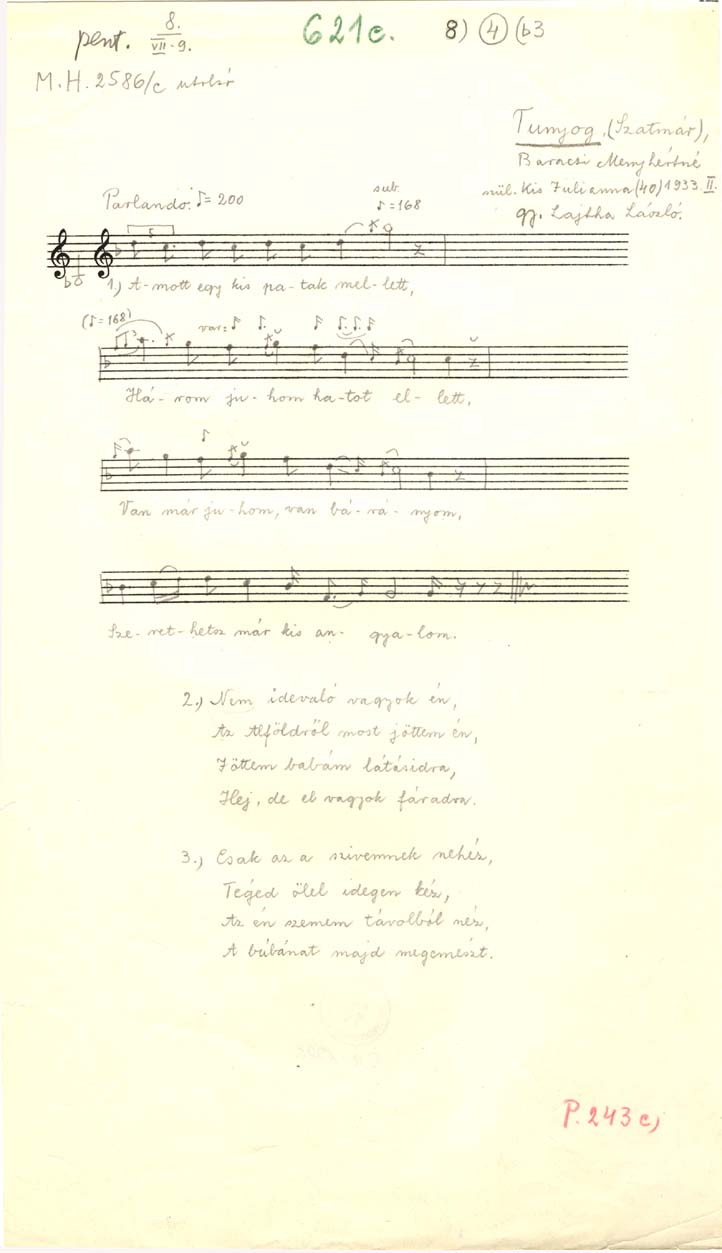 pent. 8.
VII-9.
621c.
8) 4 (b3
M.H. 2586/c utolsó
Tunyog, (Szatmár),
Baracsi Menyhértné
szül. Kis Julianna (40) 1933. II.
gy. Lajtha László.
Parlando. ♪=200
sub.
♪=168
1.) A-mott egy kis pa-tak mel-lett,
(♪=168)
var:
Há-rom ju-hom ha-tot el-lett,
Van már ju-hom, van bá-rá-nyom,
Sze-ret-hetsz már kis an-gya-lom.
2.) Nem idevaló vagyok én,
Az Alföldről most jöttem én,
Jöttem babám látásidra,
Hej, de el vagyok fáradra.
3.) Csak az a szivemnek nehéz,
Tegéd ölel idegen kéz,
Az én szemem távolból néz,
A búbánat majd megemészt.
P. 243 c)